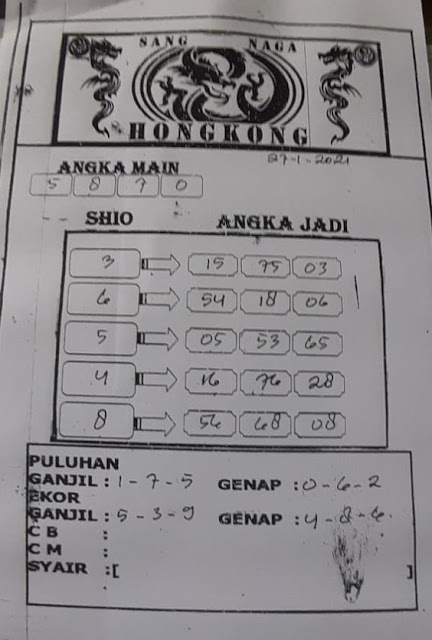 SANG NAGA
HONGKONG
27-1-2021
ANGKA MAIN
5 8 7 0
SHIO ANGKA JADI
3 15 75 03
6 54 18 06
5 05 53 65
4 16 76 28
8 56 68 08
PULUHAN
GANJIL : 1 - 7 - 5 GENAP : 0 - 6 - 2
EKOR
GANJIL : 5 - 3 - 9 GENAP : 4 - 8 - 6.
C B :
C M :
SYAIR :[ ]